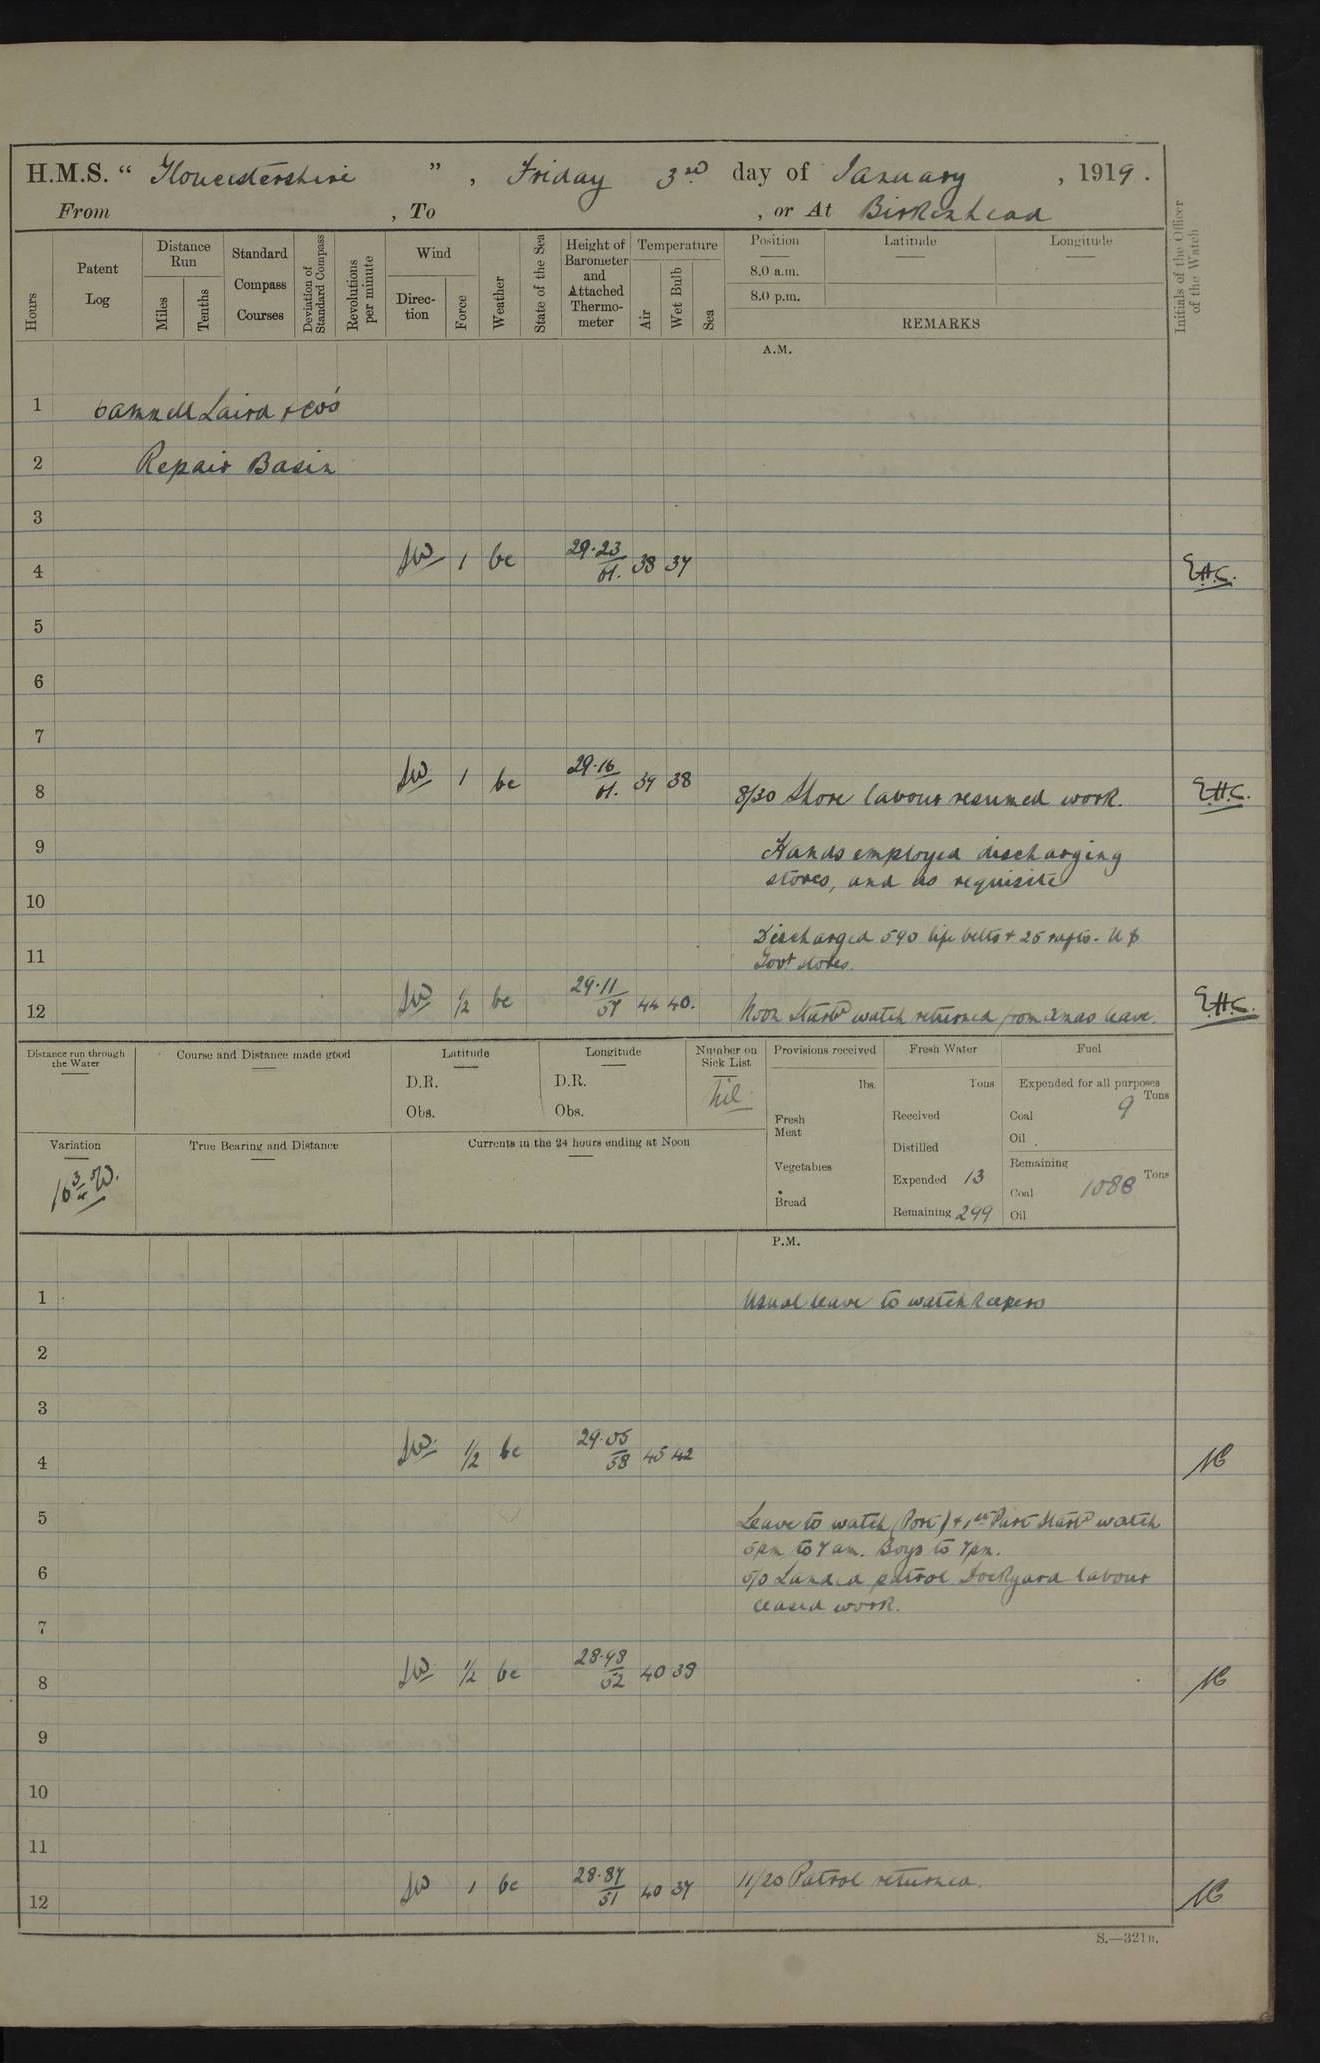 H.M.S. " Gloucestershire " , Friday 3rd day of January , 1919 .
From , To , or At Birkenhead
Hours
Patent Log
Distance Run
Miles
Tenths
Standard Compass Courses
Deviation of Standard Compass
Revolutions per minute
Wind
Direction
Force
Weather
State of the Sea
Height of Barometer and Attached Thermometer
Temperature
Air
Wet Bulb
Sea
Position
Latitude
Longitude
8.0 a.m.
8.0 p.m.
REMARKS
Initials of the Officer of the Watch
A.M.
1 Cammell Laird & Co's
2 Repair Basin
3
4 SW 1 bc 29.23 38 37 E.H.C.
5
6
7
8 SW 1 bc 29.16 38 E.H.C.
8/30 Shore labour resumed work.
9 Hands employed discharging
stores, and as requisite
10
Discharged 590 life belts & 25 rafts - U S
11 Govt stores.
12 SW 1/2 bc 29.11 57 44 40. Noon Starbd watch returned from Xmas leave. E.H.C.
Distance run through the Water
Course and Distance made good
Latitude
D.R.
Obs.
Longitude
D.R.
Obs.
Number on Sick List
Nil
Provisions received
lbs.
Fresh Meat
Vegetables
Bread
Fresh Water
Tons
Received
Distilled
Expended 13
Remaining 299
Fuel
Expended for all purposes
Tons
Coal 9
Oil
Remaining
Tons
Coal 1088
Oil
Variation
16 3/4 W.
True Bearing and Distance
Currents in the 24 hours ending at Noon
P.M.
1 Usual leave to watchkeepers
2
3
4 SW 1/2 bc 29.05 58 45 42
5 Leave to watch (Port) & 1st Part Starbd watch
5pm to 7 am. Boys to 7pm.
6 5/0 Landed patrol. Dockyard labour
ceased work.
7
8 SW 1/2 bc 28.98 52 40 38
9
10
11
12 SW 1 bc 28.87 51 40 37 11/20 Patrol returned.
S.—321B.